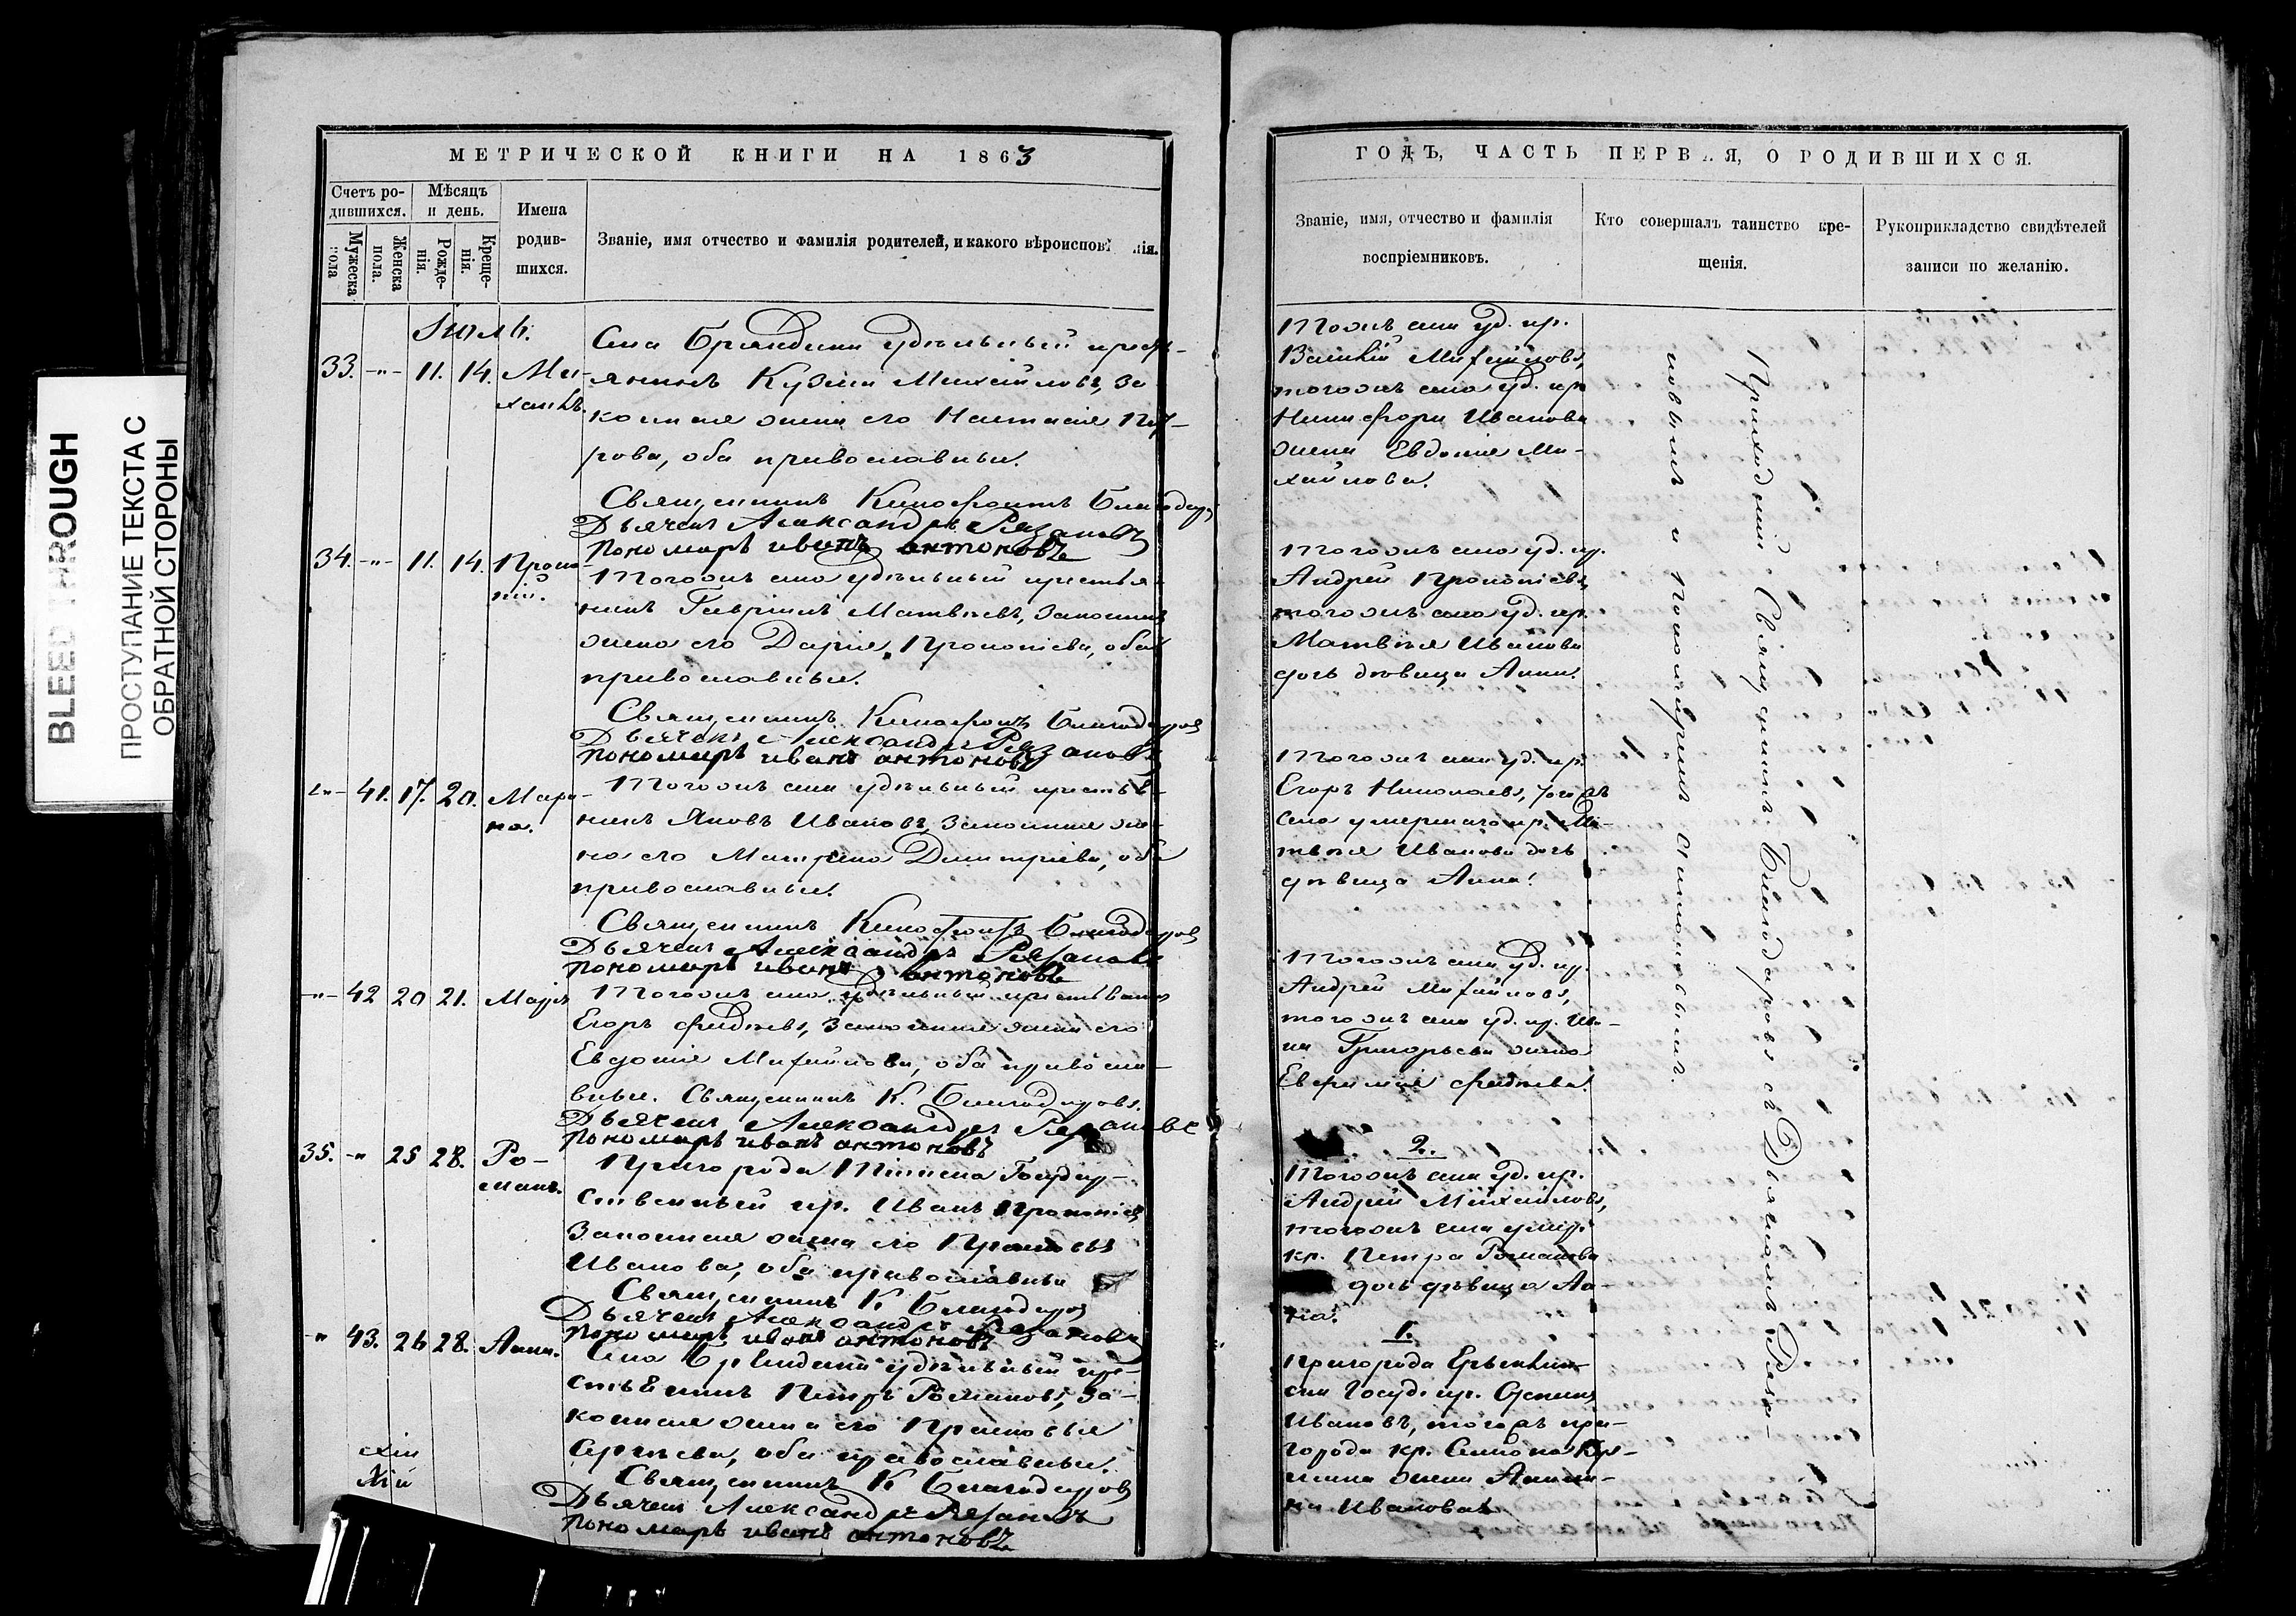 BLEED THROUGH
ПРОСТУПАНИЕ ТЕКСТА С
ОБРАТНОЙ СТОРОНЫ
МЕТРИЧЕСКОЙ КНИГИ НА 1863
Счетъ ро-
дившихся.
Мужеска
пола
Женска
пола.
Мѣсяцъ
и день.
Рожде-
нія.
Креще-
нія.
Имена
родив-
шихся.
Званіе, имя отчество и фамилія родителей, и какого вѣроиспов нія.
Іюль.
33. -"- 11. 14. Ми-
хаилъ.
Села Бряндина удѣльный кресть-
янинъ Кузьма Михайловъ, за
конная жена его Настасія Пет-
рова, оба православные.
Священникъ Ксенофонтъ Благодаров
Дьячекъ Александръ Рязановъ
Пономарь иванъ антоновъ
34. -"- 11. 14. Проко-
пій.
Тогожъ села удѣльный крестья-
нинъ Гавріилъ Матвѣевъ, законная
жена его Дарія Прокопіева, оба
православные.
Священникъ Ксенофонтъ Благодаров
Дьячекъ Александръ Рязановъ
Пономарь иванъ антоновъ
-"- 41. 17. 20. Мари-
на.
Тогожъ села удѣльный крестья-
нинъ Яковъ Ивановъ, законная же-
на его Матрена Димитріева, оба
православные.
Священникъ Ксенофонтъ Благодаров
Дьячекъ Александръ Рязановъ
Пономарь иванъ антоновъ
-"- 42 20 21.
Тогожъ села удѣльный крестьянинъ
Егоръ Фадѣевъ, законная жена его
Евдокія Михайлова, оба правосла-
вные. Священникъ К. Благодаровъ.
Дьячекъ Александръ Рязановъ
Пономарь иванъ антоновъ
35. -" 25 28. Ро-
манъ.
Пригорода Тіинска Государ-
ственный кр. Иванъ Прокопіев
Законная жена его
Иванова, оба православные
Священникъ К Благодаров
Дьячекъ Александръ Рязановъ
Пономарь иванъ антоновъ
" 43. 26 28. Анна.
Села Бряндина удѣльный кре-
стьянинъ Петръ Романовъ, за-
конная жена его Прасковья
Сергѣева, оба православные.
Священникъ К Благодаров
Дьячекъ Александръ Рязановъ
Пономарь иванъ антоновъ
ГОДЪ, ЧАСТЬ ПЕРВ Я, О РОДИВШИХСЯ.
Званіе, имя, отчество и фамилія
воспріемниковъ.
Кто совершалъ таинство кре-
щенія.
Рукоприкладство свидѣтелей
записи по желанію.
Тогожъ села уд. кр.
Василій Михайловъ,
тогожъ села уд. кр
Никифора Иванова
жена Евдокія Ми-
хайлова.
Тогожъ села уд. кр.
Андрей Прокопіевъ,
тогожъ села уд. кр.
Матвѣя Иванова
дочь дѣвица Анна.
Тогожъ села уд. кр.
Егоръ Николаевъ, тогожъ
села умершаго кр. Ма-
твѣя Иванова дочь
дѣвица Анна.
Тогожъ села уд. кр.
Андрей Михайловъ,
тогожъ села уд. кр. Ива-
на Григорьева жена
Евфимія Фадѣева.
2.
Тогожъ села уд. кр.
Андрей Михайловъ,
тогожъ села умер.
кр. Петра Романова
дочь дѣвица Ан-
на.
1.
Пригорода
Госуд. кр.
Ивановъ, тогожъ при-
города кр. Семена
жена
Иванова
Приходскій Священникъ Благодаровъ съ Дьячкомъ Ряза-
новымъ и Пономаремъ Антоновымъ.